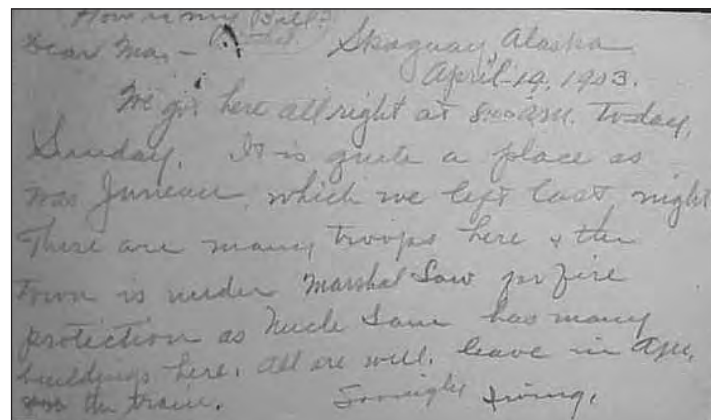 How is my Bill?
Dear Ma, - Skaguay, Alaska
April 19, 1903.
We got here all right at 8:00 a.m. today,
Sunday. It is quite a place as
was Juneau, which we left last night
There are many troops here & the
town is under Marshal Law for fire
protection as Uncle Sam has many
buildings here. All are well. leave in a.m.
on the train. Irving.